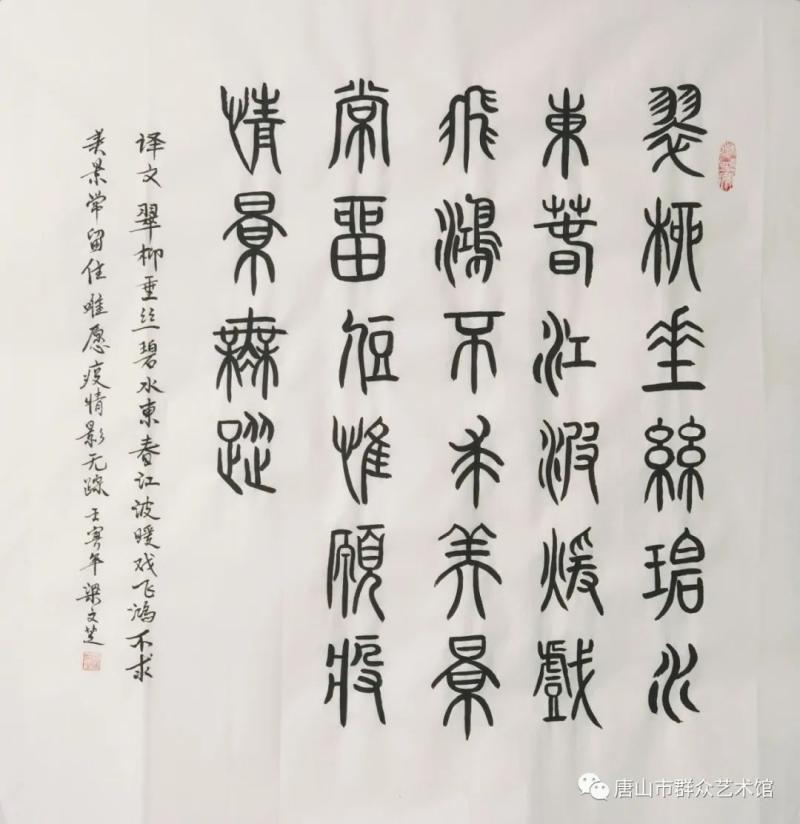 翠柳垂絲碧水
東春江波煖戲
飛鴻不求美景
常留住惟願疫
情景無蹤
译文 翠柳垂丝碧水東春江波暖戏飞鸿不求
美景常留住唯愿疫情影无踪 壬寅年 梁文芝
唐山市群众艺术馆